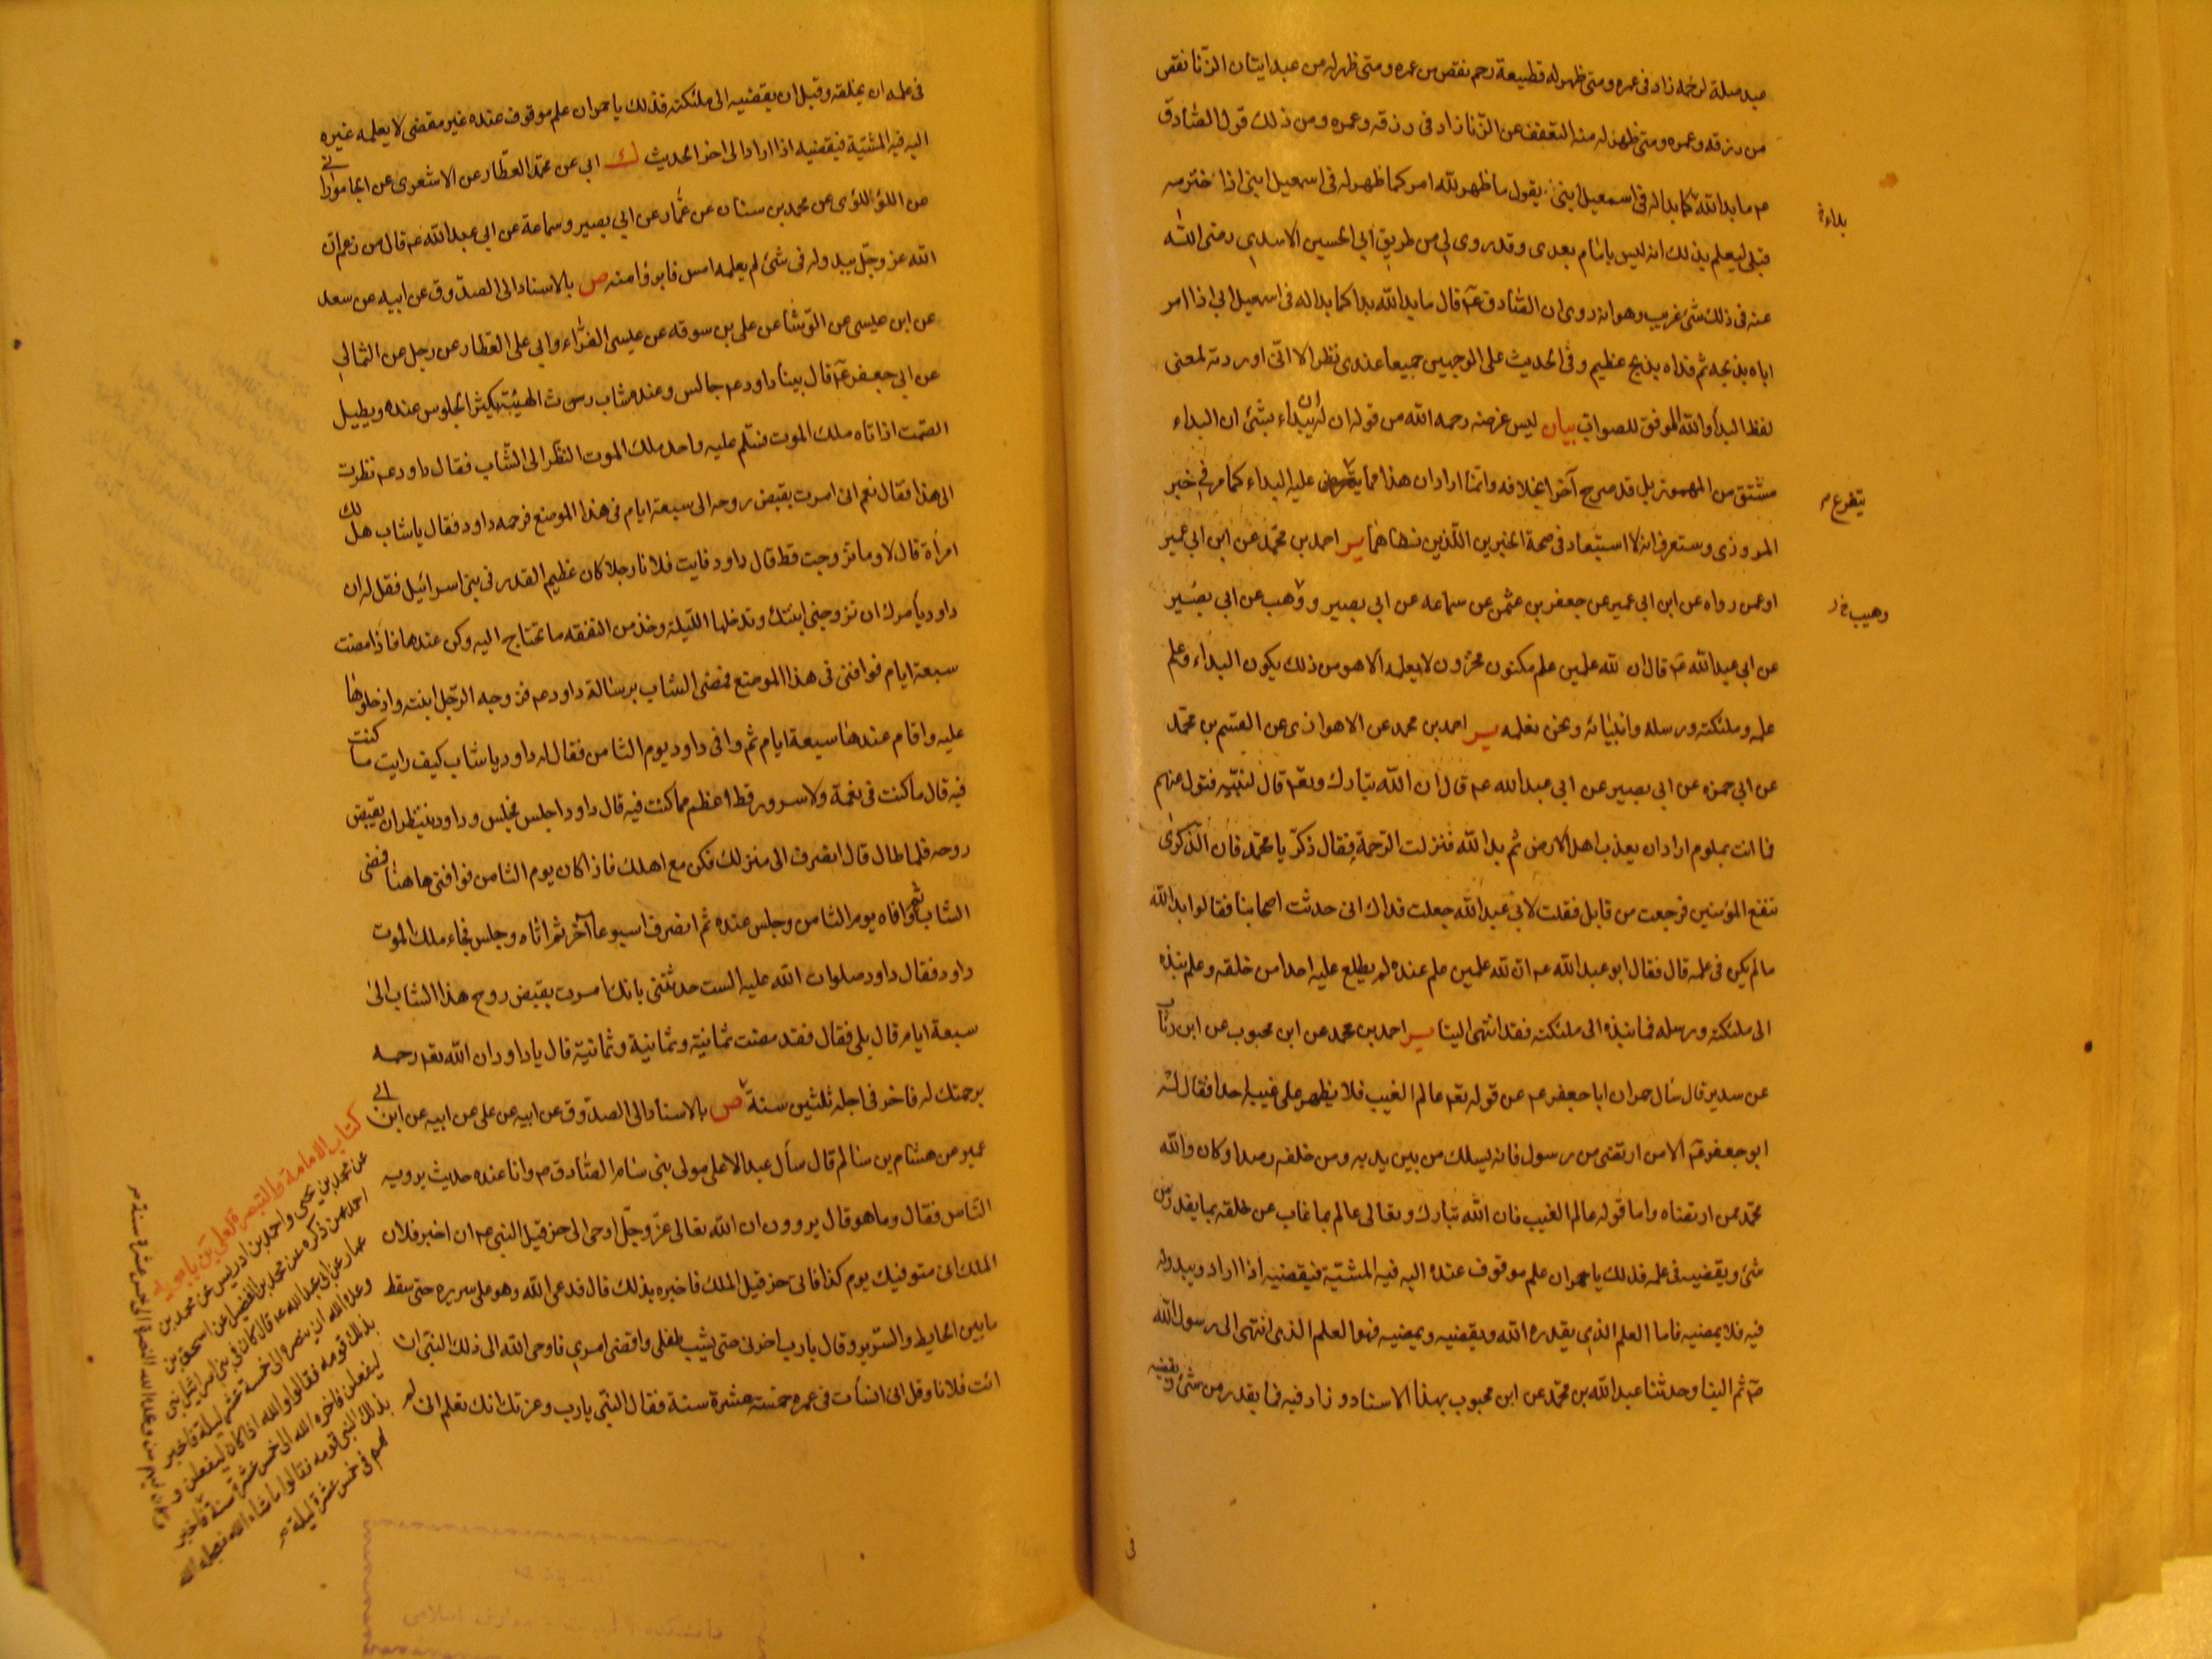 عبد صلة لرحمه زاد في عمره ومتى ظهر له قطيعة رحم نقص من عمره ومتى ظهر له من عبد اتيان الزنا نقص
من رزقه وعمره ومتى ظهر له منه التعفف عن الزنا زاد في رزقه وعمره ومن ذلك قول الصادق
ع ما بدا لله كما بدا له في اسمعيل ابني يقول ما ظهر لله امر كما ظهر له في اسمعيل ابني اذا خترمه
قبلي ليعلم بذلك انه ليس بامام بعدي وقد روي لي من طريق ابي الحسين الاسدي رضي الله
عنه في ذلك شئ غريب وهو انه روى ان الصادق ع قال ما بدا لله بدا كما بدا له في اسمعيل ابي اذا امر
اباه بذبحه ثم فداه بذبح عظيم وفي الحديث على الوجهين جميعا عندي نظر الا اني اوردته لمعنى
لفظ البدا والله الموفق للصواب بيان ليس غرضه رحمه الله من قوله ان له ان يبدء بشئ ان البداء
مشتق من المهموز بل قد صرح آخرا بخلافه وانما اراد ان هذا مما يتفرع عليه البداء كما مر في خبر
المروزي وستعرف انه لا استبعاد في صحة الخبرين اللذين نفاهما ير احمد بن محمد عن ابن ابي عمير
او عمن رواه عن ابن ابي عمير عن جعفر بن عثمن عن سماعه عن ابي بصير ووهب عن ابي بصير
عن ابي عبد الله ع قال ان لله علمين علم مكنون مخزون لا يعلمه الا هو من ذلك يكون البداء وعلم
علمه وملئكته ورسله وانبيائه ونحن نعلمه ير احمد بن محمد عن الاهوازي عن القسم بن محمد
عن ابي حمزه عن ابي بصير عن ابي عبد الله ع قال ان الله تبارك وتع قال لنبيه فتول عنهم
فما انت بملوم اراد ان يعذب اهل الارض ثم بدا لله فنزلت الرحمة فقال ذكر يا محمد فان الذكرى
تنفع المؤمنين فرجعت من قابل فقلت لابي عبد الله جعلت فداك اني حدثت اصحابنا فقالوا بدا لله
ما لم يكن في علمه قال فقال ابو عبد الله ع ان لله علمين علم عنده لم يطلع عليه احدا من خلقه وعلم نبذه
الى ملئكته ورسله فما نبذه الى ملئكته فقد انتهى الينا ير احمد بن محمد عن ابن محبوب عن ابن رئاب
عن سدير قال سال حمران ابا جعفر ع عن قوله تع عالم الغيب فلا يظهر على غيبه احدا فقال له
ابو جعفر ع الا من ارتضى من رسول فانه يسلك من بين يديه ومن خلفه رصدا وكان والله
محمد ممن ارتضاه واما قوله عالم الغيب فان الله تبارك وتعالى عالم بما غاب عن خلقه بما يقدر من
شئ ويقضيه في علمه فذلك يا حمران علم موقوف عنده اليه فيه المشية فيقضيه اذا اراد ويبدو له
فيه فلا يمضيه فاما العلم الذي يقدره الله ويقضيه ويمضيه فهو العلم الذي انتهى الى رسول الله
ص ثم الينا وحدثنا عبد الله بن محمد عن ابن محبوب بهذا الاسناد وزاد فيه فما يقدر من شئ ويقضيه
في
بداء خ
يتفرع م
وهيب خ ر
في علمه ان يخلقه وقبل ان يقضيه الى ملئكته فذلك يا حمران علم موقوف عنده غير مقضى لا يعلمه غيره
اليه فيه المشية فيقضيه اذا اراد الى اخر الحديث ك ابي عن محمد العطار عن الاشعري عن الجاموراني
عن اللؤلؤي عن محمد بن سنان عن عمار عن ابي بصير وسماعة عن ابي عبد الله ع قال من زعم ان
الله عز وجل يبدو له في شئ لم يعلمه امس فابرؤا منه ص بالاسناد الى الصدوق عن ابيه عن سعد
عن ابن عيسى عن الوشا عن علي بن سوقه عن عيسى الفراء وابي علي العطار عن رجل عن الثمالي
عن ابي جعفر ع قال بينا داود ع جالس وعنده شاب رث الهيئة يكثر الجلوس عنده ويطيل
الصمت اذ اتاه ملك الموت فسلم عليه واحد ملك الموت النظر الى الشاب فقال داود ع نظرت
الى هذا فقال نعم اني امرت بقبض روحه الى سبعة ايام في هذا الموضع فرحمه داود فقال يا شاب هل لك
امرأة قال لا وما تزوجت قط قال داود فايت فلانا رجلا كان عظيم القدر في بني اسرائيل فقل له ان
داود يأمرك ان تزوجني ابنتك وتدخلها الليلة وخذ من النفقه ما تحتاج اليه وكن عندها فاذا مضت
سبعة ايام فوافني في هذا الموضع فمضى الشاب برسالة داود ع فزوجه الرجل ابنته وادخلوها
عليه واقام عندها سبعة ايام ثم وافى داود يوم الثامن فقال له داود يا شاب كيف رايت ما كنت
فيه قال ما كنت في نعمة ولا سرور قط اعظم مما كنت فيه قال داود اجلس فجلس وداود ينتظر ان يقبض
روحه فلما طال قال انصرف الى منزلك فكن مع اهلك فاذا كان يوم الثامن فوافني هاهنا فمضى
الشاب ثم وافاه يوم الثامن وجلس عنده ثم انصرف اسبوعا آخر ثم اتاه وجلس فجاء ملك الموت
داود فقال داود صلوات الله عليه الست حدثتني بانك امرت بقبض روح هذا الشاب الى
سبعة ايام قال بلى فقال فقد مضت ثمانية وثمانية وثمانية قال يا داود ان الله تع رحمه
برحمتك له فاخر في اجله ثلثين سنة ص بالاسناد الى الصدوق عن ابيه عن علي عن ابيه عن ابن ابي
عمير عن هشام بن سالم قال سأل عبد الاعلى مولى بني سام الصادق ع وانا عنده حديث يرويه
الناس فقال وما هو قال يروون ان الله تعالى عز وجل اوحى الى حزقيل النبي ع ان اخبر فلان
الملك اني متوفيك يوم كذا فاتى حزقيل الملك فاخبره بذلك قال فدعى الله وهو على سريره حتى سقط
ما بين الحايط والسرير وقال يا رب اخرني حتى يشيب طفلي واقضي امري فاوحى الله الى ذلك النبي ان
ائت فلانا وقل اني انسأت في عمره خمسة عشرة سنة فقال النبي يا رب وعزتك انك تعلم اني لم
كتاب الامامة والتبصرة لعلي بن بابويه
عن محمد بن يحيى واحمد بن ادريس عن محمد بن
احمد عمن ذكره عن محمد بن الفضيل عن اسحق بن
عمار عن ابي عبد الله ع قال كان في بني اسرائيل نبي
وعده الله ان ينصره الى خمسة عشر ليلة فاخبر
بذلك قومه فقالوا والله اذا كان ليفعلن و
ليفعلن فاخره الله الى خمس عشرة سنة فاخبر
بذلك النبي قومه فقالوا ما شاء الله فعجله الله
لهم في خمس عشرة ليلة
وكان فيهم من وعده الله النصرة الى خمس عشرة سنة